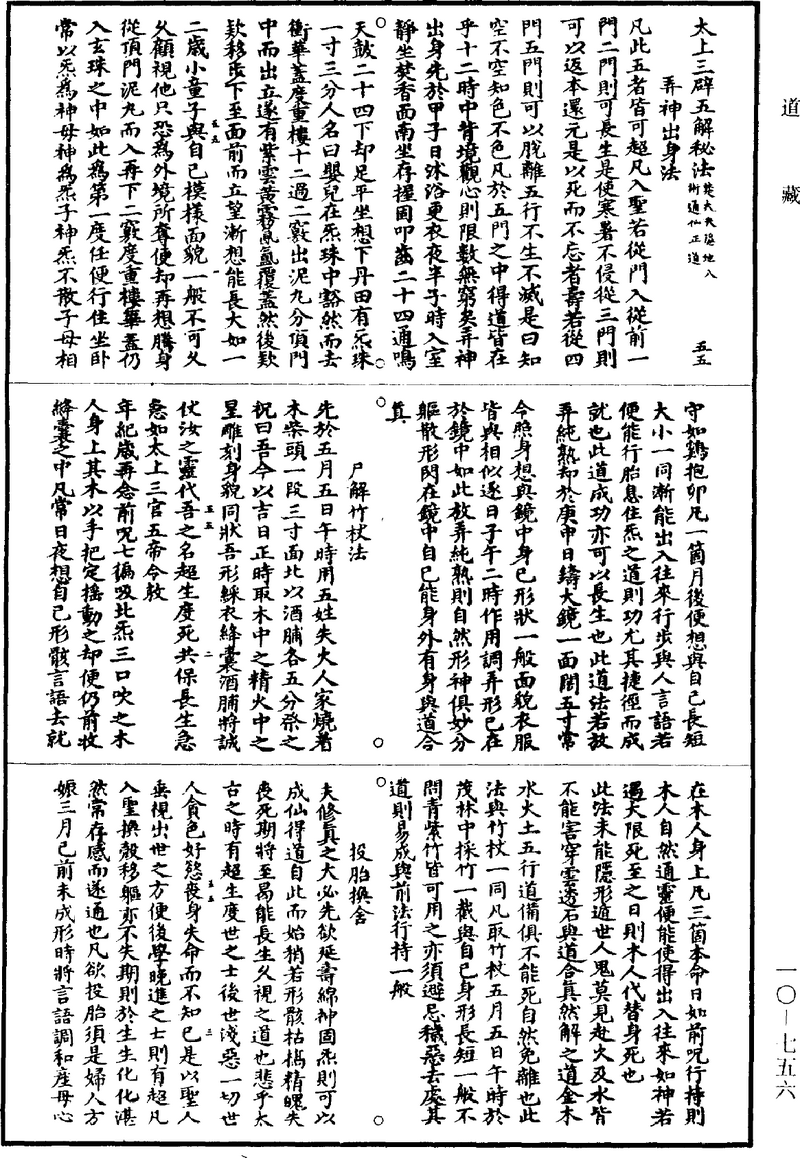 道藏
太上三辟五解秘法
五五
弄神出身法
凡此五者皆可超凡入聖若從門入從前一
門二門則可長生是使寒暑不侵從三門則
可以返本還元是以死而不忘者壽若從四
門五門則可以脫離五行不生不滅是曰知
空不空知色不色凡於五門之中得道皆在
乎十二時中背境觀心則限數無窮矣弄神
出身先於甲子日沐浴更衣夜半子時入室
靜坐焚香面南坐存握固叩齒二十四通鳴
天鼓二十四下却足平坐想下丹田有炁珠
一寸三分人名曰嬰兒在炁珠中豁然而去
衝華蓋度重樓十二過二竅出泥九分頂門
中而出立遂有紫雲黃霧鳳氤覆蓋然後欻
欻移步下至面前而立望漸想能長大如一
二歲小童子與自己模樣面貌一般不可久
久顧視他只恐為外境所奪便却再想騰身
從頂門泥九而入再下二竅度重樓華蓋仍
入玄珠之中如此為第一度任便行住坐卧
常以炁為神母神為炁子神炁不散子母相
守如鷄抱卵凡一箇月後便想與自己長短
大小一同漸能出入往來行步與人言語若
便能行胎息住炁之道則功尤其捷徑而成
就也此道成功亦可以長生也此道法若放
弄純熟却於庚申日鑄大鏡一面闊五寸常
令照身想與鏡中身已形狀一般面貌衣服
皆與相似遂日子午二時作用調弄形已在
於鏡中如此放弄純熟則自然形神俱妙分
軀散形閃在鏡中自已能身外有身與道合
真
尸解竹杖法
先於五月五日午時用五姓失夫人家燒著
木柴頭一段三寸面北以酒脯各五分祭之
祝曰吾今以吉日正時取木中之精火中之
星雕刻身貌同狀吾形綵衣絳囊酒脯將誠
伏汝之靈代吾之名超生度死共保長生急
急如太上三官五帝令敕
年紀歲再念前呪七徧吸北炁三口吹之木
人身上其木以手把定搖動之却便仍前收
絳囊之中凡常日夜想自己形骸言語去就
在木人身上凡三箇本命日如前呪行持則
木人自然通靈便能使得出入往來如神若
遇大限死至之日則木人代替身死也
此法未能隱形遁世人鬼莫見赴火及水皆
不能害穿雲透石與道合真然解之道金木
水火土五行道備俱不能死自然免離也此
法與竹杖一同凡取竹杖五月五日午時於
茂林中採竹一截與自己身形長短一般不
問青紫竹皆可用之亦須避忌穢惡去處其
道則易成與前法行持一般
投胎換舍
夫修真之大必先欲延壽綿神固炁則可以
成仙得道自此而始稍若形骸枯槁精魄失
喪死期將至曷能長生久視之道也悲乎太
古之時有超生度世之士後世淺惡一切世
人貪色好慾喪身失命而不知已是以聖人
垂視出世之方便後學晚進之士則有超凡
入聖換殼移軀亦不失期則於生生化化湛
然常存感而遂通也凡欲投胎須是婦人方
娠三月已前未成形時將言語調和產母心
一〇—七五六